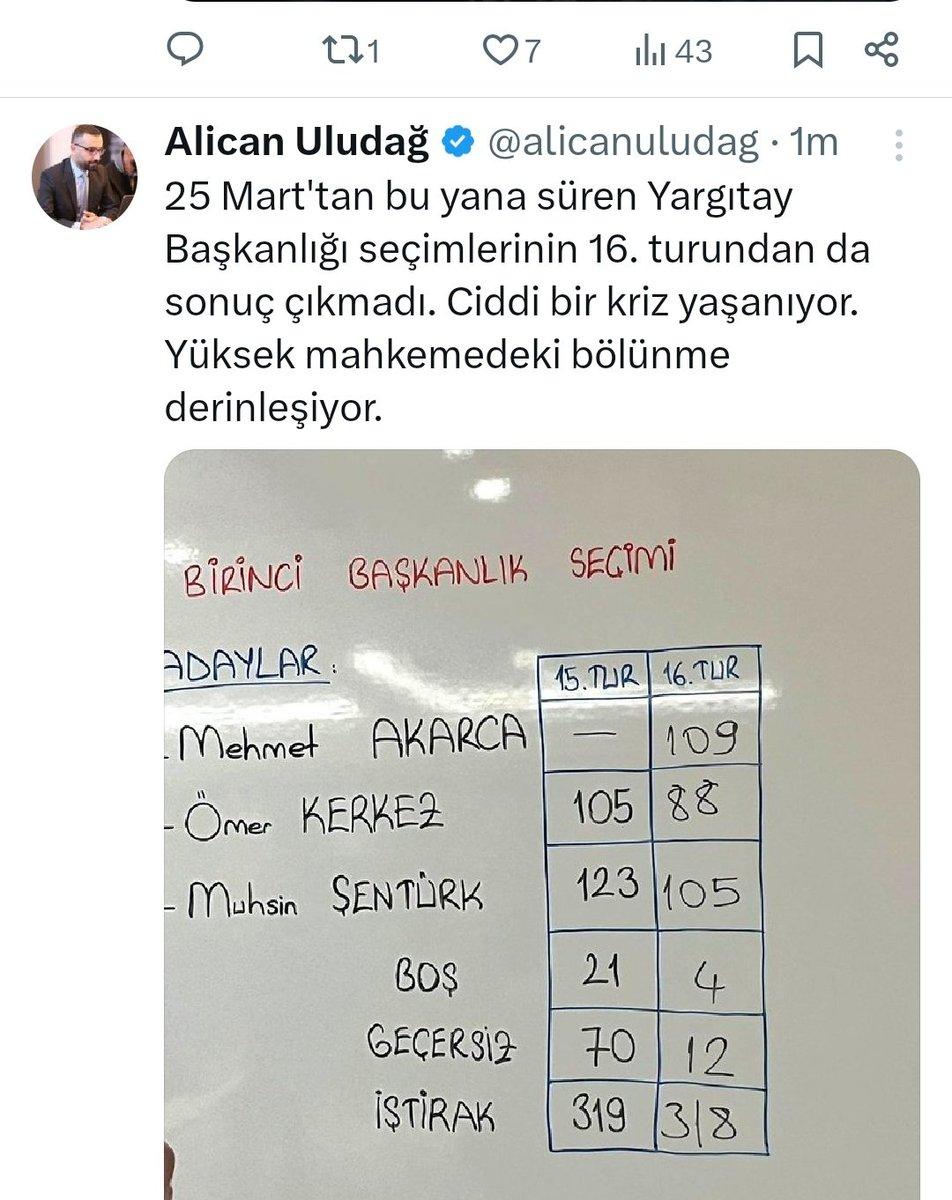 1 7 43
Alican Uludağ @alicanuludag · 1m
25 Mart'tan bu yana süren Yargıtay
Başkanlığı seçimlerinin 16. turundan da
sonuç çıkmadı. Ciddi bir kriz yaşanıyor.
Yüksek mahkemedeki bölünme
derinleşiyor.
BİRİNCİ BAŞKANLIK SEÇİMİ
ADAYLAR:
15.TUR 16.TUR
- Mehmet AKARCA — 109
- Ömer KERKEZ 105 88
- Muhsin ŞENTÜRK 123 105
BOŞ 21 4
GEÇERSİZ 70 12
İŞTİRAK 319 318